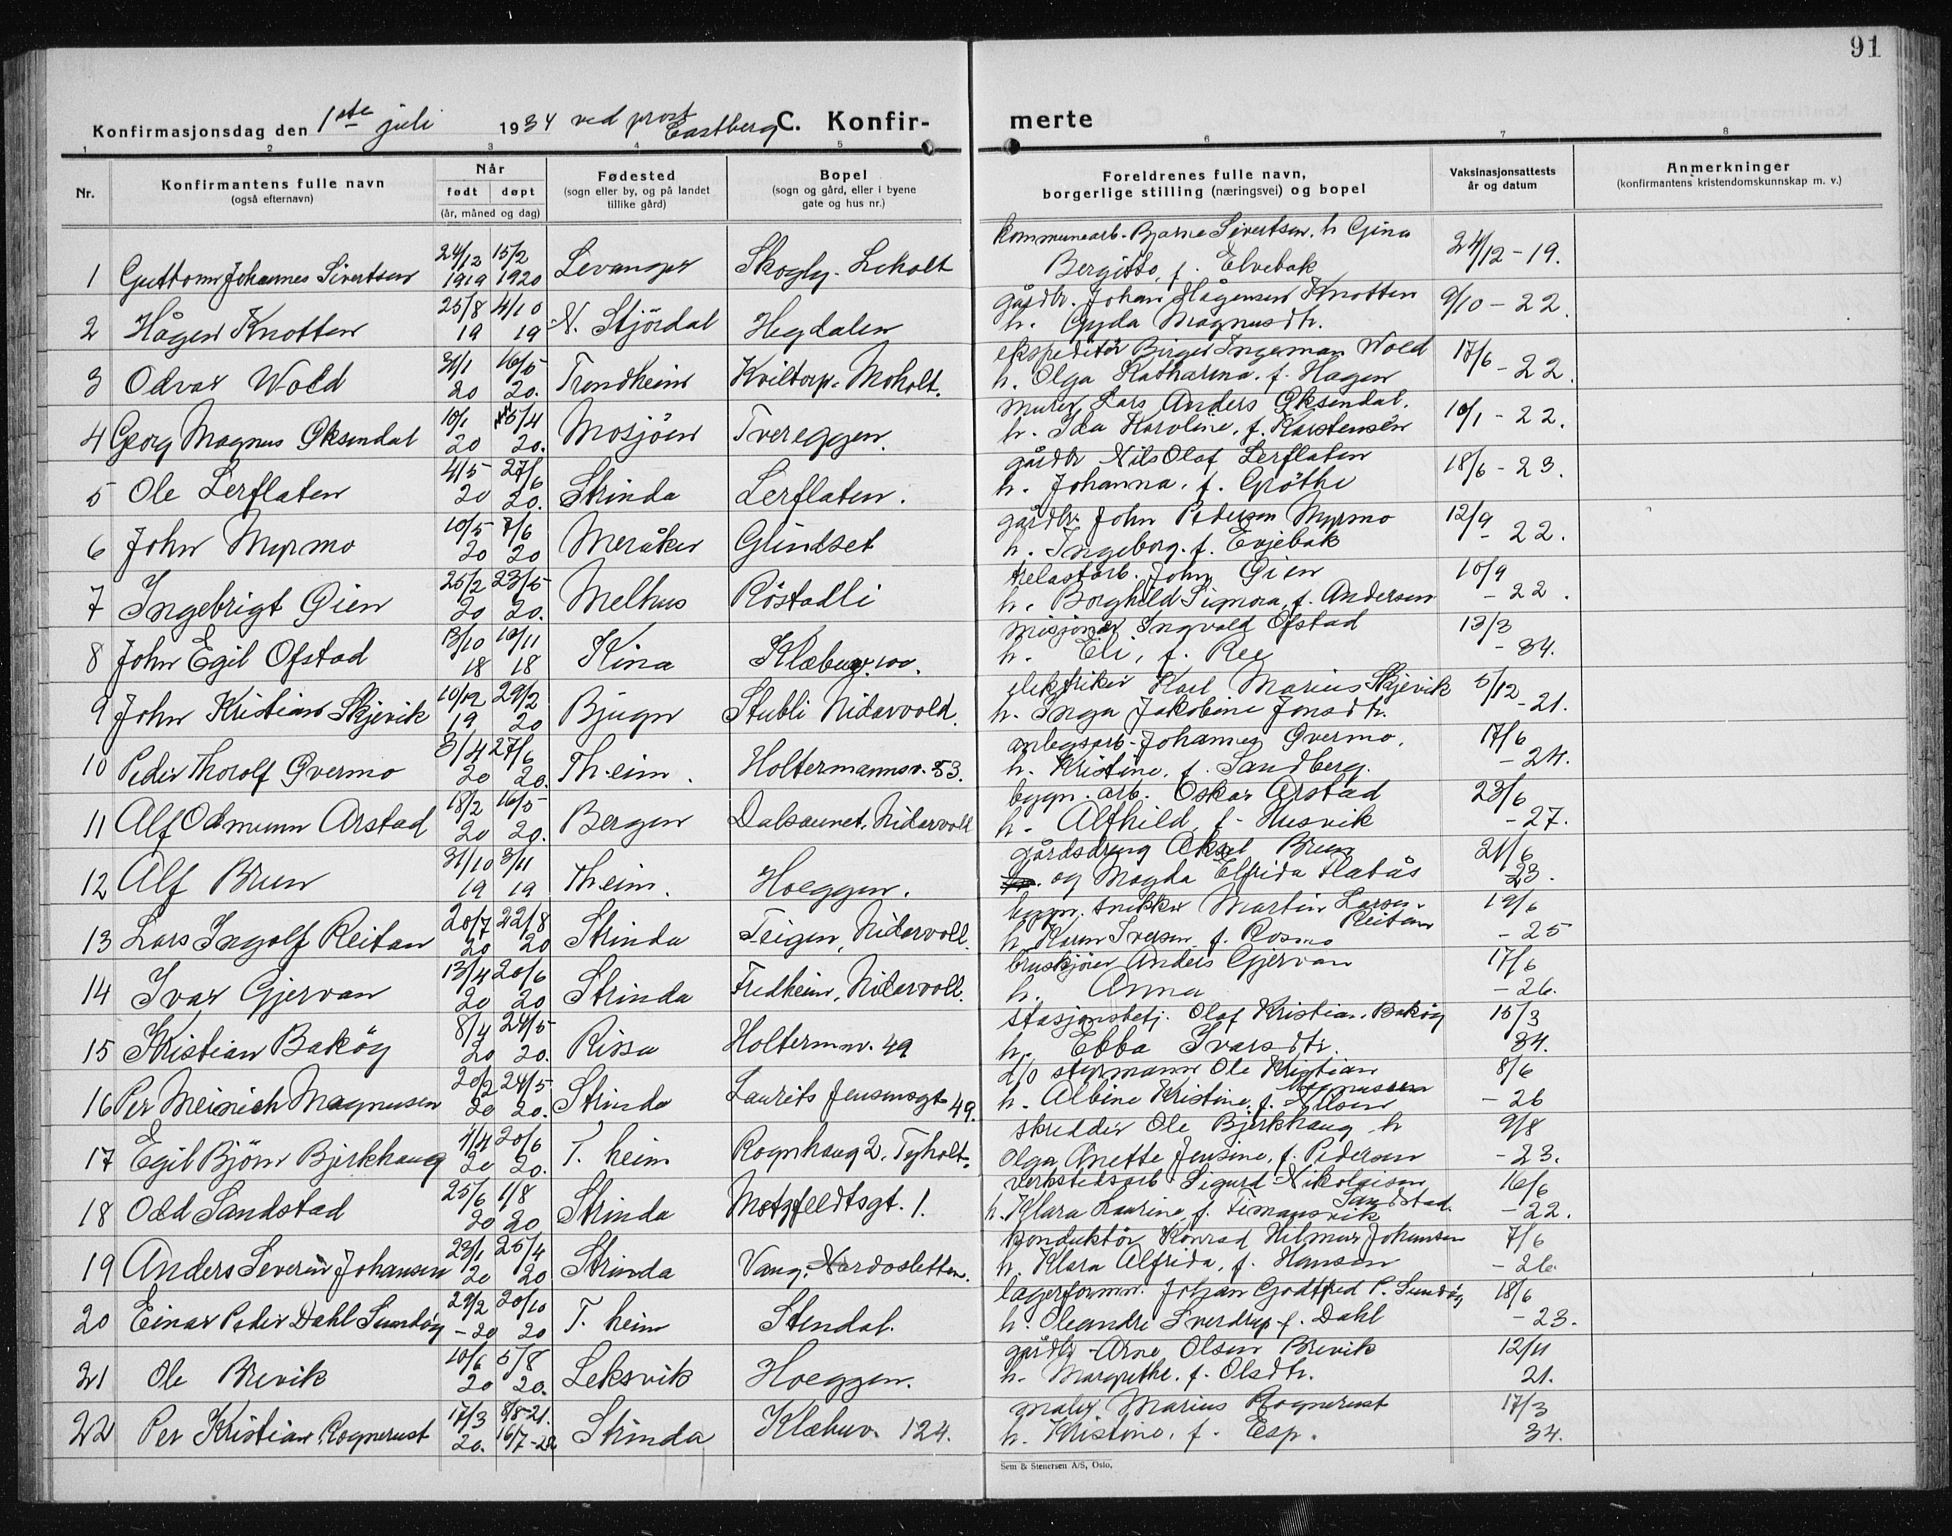 91
Konfirmasjonsdag den 1ste juli 1934 ved prost Castberg C. Konfir-
merte
1 2 3 4 5 6 7 8
Nr. Konfirmantens fulle navn (også efternavn) Når født døpt (år, måned og dag) Fødested (sogn eller by, og på landet tillike gård) Bopel (sogn og gård, eller i byene gate og hus nr.) Foreldrenes fulle navn, borgerlige stilling (næringsvei) og bopel Vaksinasjonsattests år og datum Anmerkninger (konfirmantens kristendomskunnskap m. v.)
1 Guttorm Johannes Sivertsen 24/12 1919 15/2 1920 Levanger Skogly - Leholt kommunearb. Bjarne Sivertsen. h Gina
Bergitte, f. Elvebak 24/12 - 19.
2 Hågen Knotten 25/8 19 4/10 19 N. Stjördal Hegdalen gårdbr. Johan Hågensen Knotten
h. Gyda Magnusdtr. 9/10 - 22.
3 Odvar Wold 31/1 20 16/5 20. Trondheim Kviltorp - Moholt. ekspeditör Birger Ingeman Wold
h. Olga Katharina. f. Hagen 17/6 - 22.
4 Georg Magnus Öksendal 10/1 20 5/4 20. Mosjöen Tvereggen. murer Lars Anders Öksendal.
h. Ida Karoline, f. Karstensen 10/1 - 22.
5 Ole Lerflaten 4/5 20 27/6 20. Strinda Lerflaten. gårdbr Nils Olaf Lerflaten
h. Johanna, f. Gröthe 18/6 - 23.
6 John Myrmo 10/5 20 7/6 20 Meråker Glindset gårdbr. John Pedersen Myrmo
h. Ingeborg. f. Evjebak 12/9 - 22.
7 Ingebrigt Öien 25/2 20 23/5 20. Melhus Röstadli trelastarb. John Öien
h. Borghild Signora, f. Andersen 10/9 - 22.
8 John Egil Ofstad 13/10 18 10/11 18 Kina Klæbuv. 100. misjonær Ingvald Ofstad
h. Eli, f. Ree 13/3 - 34.
9 John Kristian Skjevik 10/12 19 29/2 20 Bjugn Stubli Nidarvold. elektriker Karl Marius Skjevik
h. Inga Jakobine Jonsdtr. 5/12 - 21.
10 Peder Thorolf Övermo 3/4 20 27/6 20. Th.eim. Holtermannsv. 53. anlegsarb - Johannes Övermo.
h. Kristine, f. Sandberg. 17/6 - 24.
11 Alf Odmunn Arstad 18/2 20 16/5 20. Bergen Dalsaunet, Nidarvoll bygn. arb. Oskar Arstad
h. Alfhild, f. Husvik 23/6 - 27.
12 Alf Brun 31/10 19 3/11 19 Theim. Hoeggen. gårdsdreng Aksel Brun
og Magda Elfrida Flatås 21/6 23.
13 Lars Ingolf Reitan 20/7 20 22/8 20 Strinda Teigen, Nidarvoll. bygn. snekker Martin Larsen Reitan
h. Karen Iversen f. Rosmo 19/6 - 25
14 Ivar Gjervan 13/4 20 20/6 20 Strinda Fredheim, Nidarvoll. bruskjører Anders Gjervan
h. Anna 17/6 - 26.
15 Kristian Bakög 8/4 20 24/5 20. Rissa Holtermv. 49 stasjonsbetj. Olaf Kristian Bakög
h. Ebba Ivarsdtr. 15/3 34.
16 Per Meinich Magnusen 20/2 20 24/5 20. Strinda Laurits Jensensgt 49. d/o styrmann Ole Kristian Magnussen
h. Albine Kristine, f. Nilsen 8/6 - 26
17 Egil Björn Bjerkhaug 1/4 20 20/6 20. T. heim Rognhaug 2, Tyholt. skredder Ole Bjerkhaug h
Olga Anette Jensine, f. Pedersen 9/8 - 23.
18 Odd Sandstad 25/6 20 1/8 20 Strinda Metzfeldtsgt. 1. verkstedsarb Sigurd Nikolaisen Sandstad
h. Klara Laurine, f. Timansvik 16/6 - 22.
19 Anders Severin Johansen 23/1 20 25/4 20 Strinda Vang, Nardosletten. konduktör Konrad Hilmar Johansen
h. Klara Alfrida, f. Hansen 7/6 - 26.
20 Einar Peder Dahl Sundöy 29/2 - 20 20/10 20 T. heim Stendal. lagerformn. Johan Godtfred P. Sundöy
h. Oleandre Sverdrup f. Dahl 18/6 - 23.
21 Ole Brevik 10/6 20 5/8 20. Leksvik Hoeggen. gårdbr - Arne Olsen Brevik
h. Margrethe. f. Olsdtr. 12/11 21.
22 Per Kristian Rognerust 17/3 20. 8/8-21. 16/7-22 Strinda Klæbuv. 124. maler Marius Rognerust
h. Kristine, f. Esp. 17/3 34.
Sem & Stenersen A/S, Oslo.